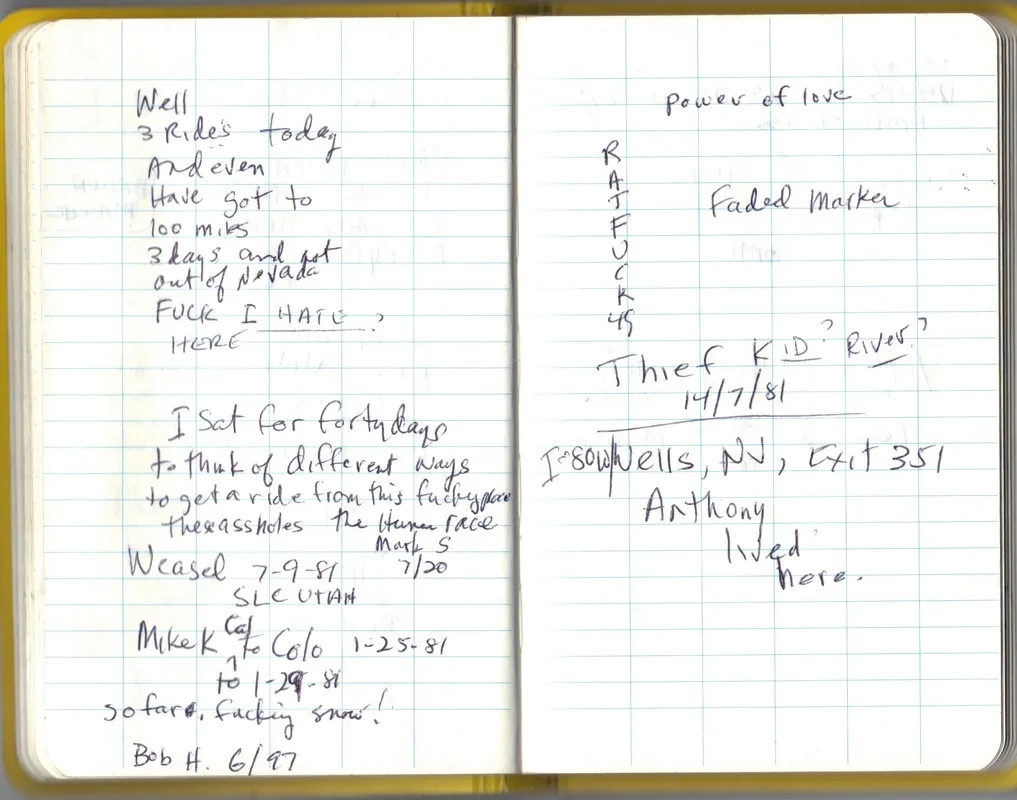 Well
3 Rides today
And even
Have got to
100 miles
3 days and not
out of Nevada
FUCK I HATE ?
HERE
I Sat for forty days
to think of different ways
to get a ride from this fucking place
these assholes the Human race
Mark S
7/20
Weasel 7-9-81
SLC UTAH
Mike K Cal to Colo 1-25-81
to 1-29-81
so far. fucking snow!
Bob H. 6/97
power of love
R
A
T
F
U
C
K
45
Faded Marker
Thief KID? River?
14/7/81
I-80W/Wells, NV, Exit 351
Anthony
lived
here.